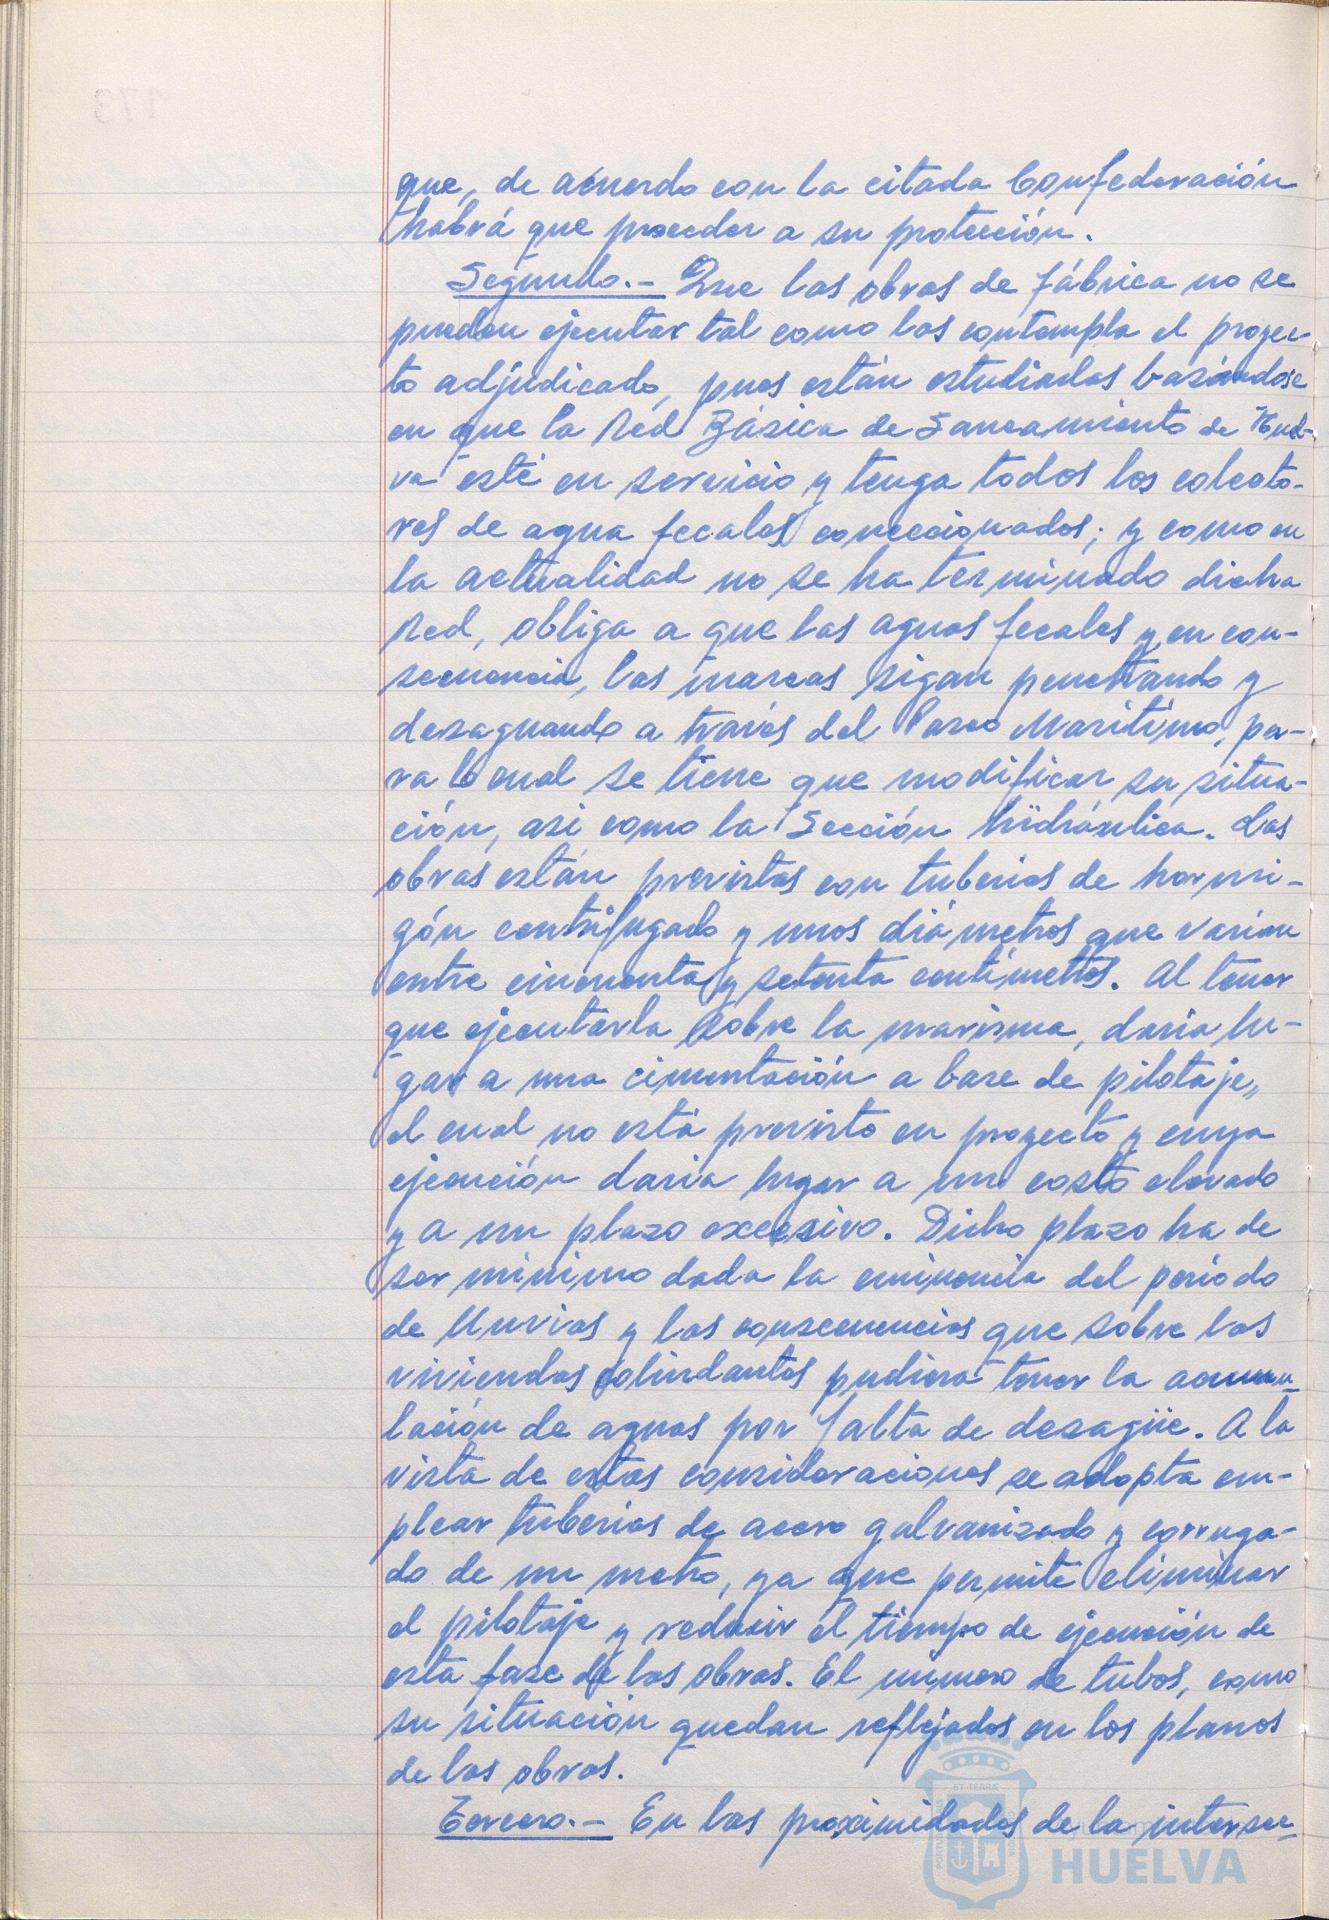 que, de acuerdo con la citada Confederación
habrá que proceder a su protección.
Segundo.- Que las obras de fábrica no se
pueden ejecutar tal como las contempla el proyec-
to adjudicado, pues están estudiadas basándose
en que la Red Básica de Saneamiento de Huel-
va esté en servicio y tenga todos los colecto-
res de agua fecales coneccionados; y como en
la actualidad no se ha terminado dicha
Red, obliga a que las aguas fecales y en con-
secuencia, las mareas sigan penetrando y
desaguando a través del Paseo Marítimo, pa-
ra lo cual se tiene que modificar su situa-
ción, asi como la Sección hidráulica. Las
obras están previstas con tuberias de hormi-
gón centrifugado y unos diámetros que varian
entre cincuenta y setenta centímetros. Al tener
que ejecutarla sobre la marisma, daria lu-
gar a una cimentación a base de pilotaje,
el cual no está previsto en proyecto y cuya
ejecución daria lugar a un costo elevado
y a un plazo excesivo. Dicho plazo ha de
ser mínimo dada la eminencia del período
de lluvias y las consecuencias que sobre las
viviendas colindantes pudiera tener la acumu-
lación de aguas por falta de desagüe. A la
vista de estas consideraciones se adopta em-
plear tuberias de acero galvanizado y corruga-
do de un metro, ya que permite eliminar
el pilotaje y reducir el tiempo de ejecución de
esta fase de las obras. El número de tubos, como
su situación quedan reflejados en los planos
de las obras.
Tercero.- En las proximidades de la intersec-
HUELVA